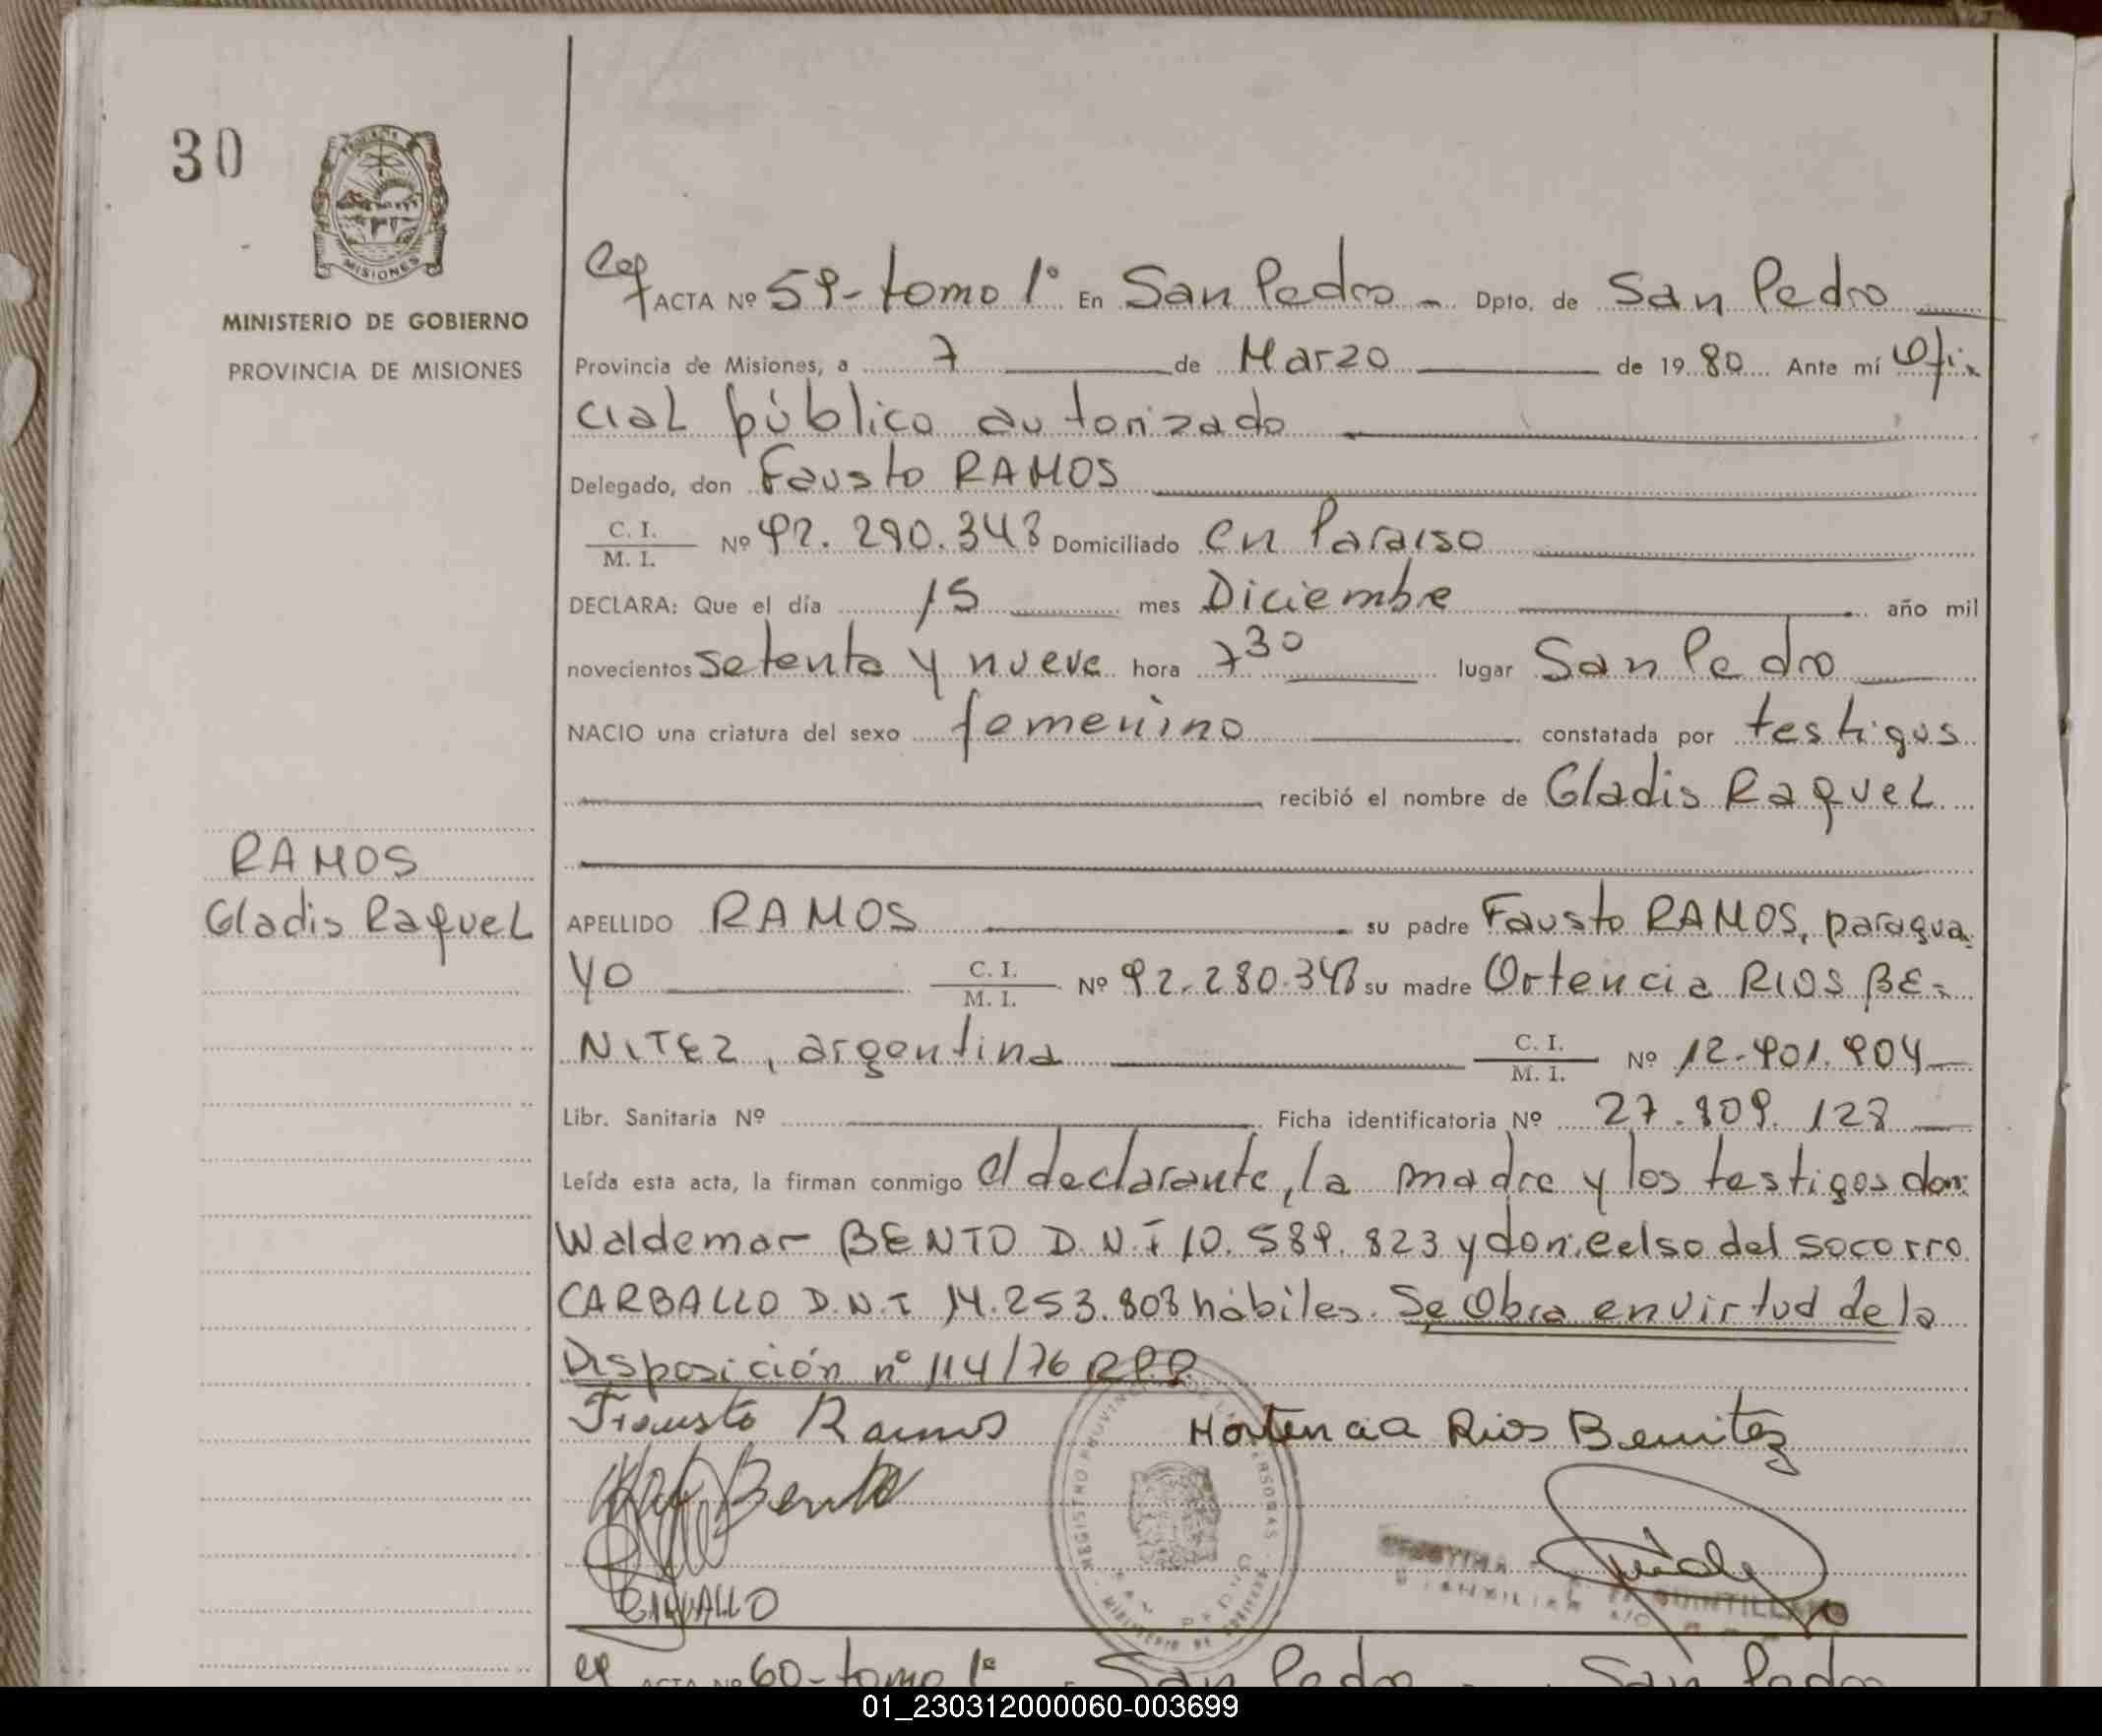 30
PROVINCIA DE
MISIONES
MINISTERIO DE GOBIERNO
PROVINCIA DE MISIONES
Cop ACTA Nº 59- tomo 1° En San Pedro - Dpto. de San Pedro
Provincia de Misiones, a 7 de Marzo de 1980 Ante mí Ofi-
cial público autorizado
Delegado, don Fausto RAMOS
C. I.
M. I. Nº 92.290.348 Domiciliado en Paraiso
DECLARA: Que el día 15 mes Diciembre año mil
novecientos setenta y nueve hora 7 30 lugar San Pedro
NACIO una criatura del sexo femenino constatada por testigos
recibió el nombre de Gladis Raquel
RAMOS
Gladis Raquel
APELLIDO RAMOS su padre Fausto RAMOS, paragua-
yo C. I.
M. I. Nº 92.280.348 su madre Ortencia RIOS BE-
NITEZ, argentina C. I.
M. I. Nº 12.901.904
Libr. Sanitaria Nº Ficha identificatoria Nº 27.809.128
Leída esta acta, la firman conmigo el declarante, la madre y los testigos don:
Waldemar BENTO D.N.I 10.589.823 y don: Celso del socorro
CARBALLO D.N.I 14.253.808 hábiles. Se Obra en virtud de la
Disposición nº 114/76 RPP
Frausto Ramos Hortencia Rios Benitez
Bento
CARVALLO
REGISTRO PROVINCIAL DE LAS PERSONAS
SAN PEDRO
MINISTERIO DE GOBIERNO
QUINTILLANO
ACTA Nº 60- tomo 1° San Pedro San Pedro
01_230312000060-003699